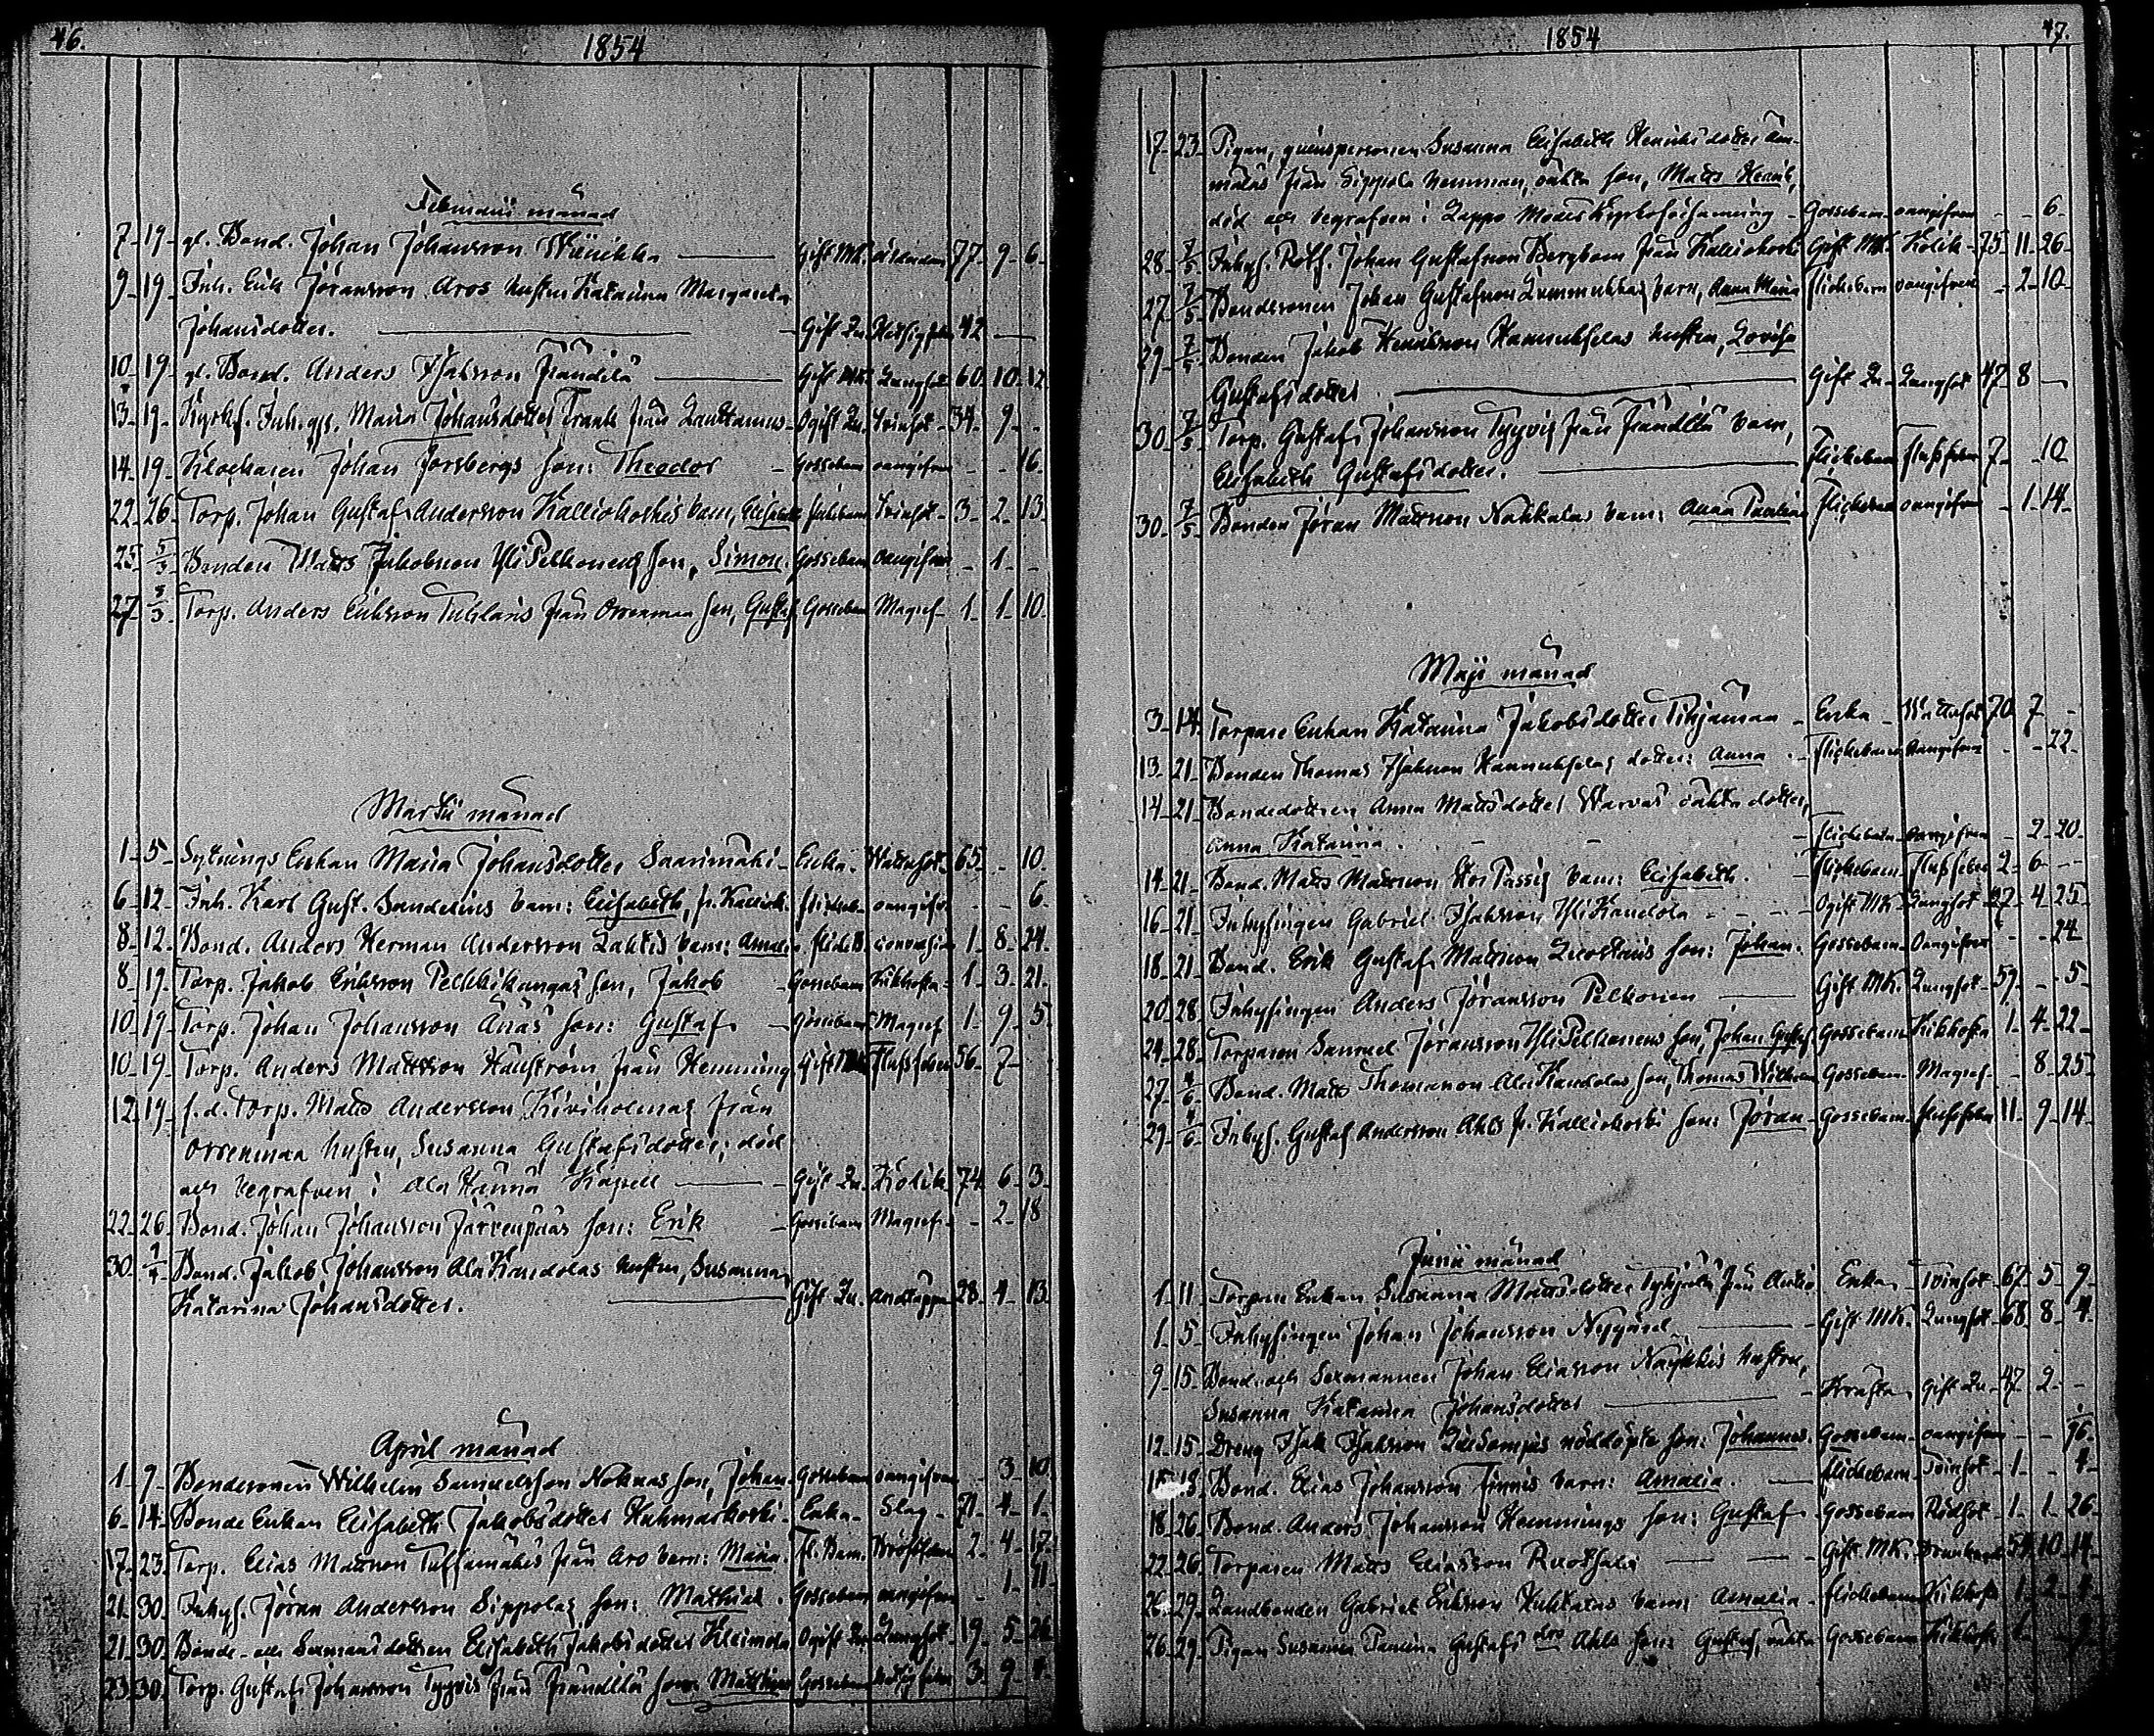 46.
1854
Februarii månad
7 19 gl. Bond. Johan Johansson Gift MK. 77 9 6
9 19 Inh. Erik Jöransson Aros hustru Katarina Margareta
Johansdotter. Gift Qu. 42
10 19 gl. Bond. Anders Isaksson Frändilä Gift MK. Lungsot 60 10 12
13 19 Kyrkh. Inh. Maria Johansdotter från Lauttamus Ogift Qu. Tvinsot 34 9
14 19 Klockaren Johan Forsbergs son: Theodor Gossebarn oangifven 16
22 26 Torp. Johan Gustaf Andersson Kalliokoskis barn, Elisabeth Tvinsot 3 2 13
25 5/3 Bonden Matts Jakobsson Yli Pelkonens son, Simon. Gossebarn oangifven 1
27 5/3 Torp. Anders Eriksson från Orrenmaa son, Gustaf Gossebarn Magref 1 1 10
Martii månad
1 5 Sytnings Enkan Maria Johansdotter Saarimäki Enka. Wattusot 65 10
6 12 Inh. Karl Gust. Sanderins barn: Elisabeth, fr. Kalliok. oangifv. 6
8 12 Bond. Anders Herman Andersson Lahtis barn: Amalia 1 8 24
8 19 Torp. Jakob Eriksson Pelkkikangas son, Jakob Gossebarn Kikhosta 1 3 21
10 19 Torp. Johan Johansson Änäs son: Gustaf Gossebarn Magref 1 9 5
10 19 Torp. Anders Mattsson från Hemming Gift MK Flussfeber 56 7
12 19 f.d. Torp. Matts Andersson Kiviholmas från
Orrenmaa hustru, Susanna Gustafsdotter; död
och begrafven i Ala Härmä Kapell Gift Qu. Kolik 74 6 3
22 26 Bond. Johan Johansson Järrenpääs son: Erik Gossebarn Magref 2 18
30 1/4 Bond. Jakob Johansson Ala Kandolas hustru, Susanna
Katarina Johansdotter. Gift Qu. 28 4 13
April månad
1 9 Bondesonen Wilhelm Samuelsson son, Johan Gossebarn oangifven 3 10
6 14 Bonde Enkan Elisabeth Jakobsdotter Kuhmaskoski Enka Slag 71 4 1
17 23 Torp. Elias Mattsson från Aro barn: Maria. Fl. Barn. 2 4 17
21 30 Inhys. Jöran Andersson Sippolas son: Mathias. Gossebarn oangifven 1 11
21 30 Bonde och Sexmansdottren Elisabeth Jakobsdotter Kleimola Ogift Qu. Lungsot 19 5 26
23 30 Torp. Gustaf Johansson Tyyvis från Frändilä son: Matthias Gossebarn 3 9
1854
47.
17 23 Pigan, Susanna Elisabeth Henriksdotter
från Sippola hemman, oäkta son, Matts Henrik,
död och begrafven i Lappo Moders Kyrkoförsamling Gossebarn oangifven 6
28 7/5 Inhys. Johan Gustafsson Bergbom från Kalliokoski Gift MK. Kolik 75 11 26
27 7/5 Bondesonen Johan Gustafsson barn, Anna Maria Flickebarn oangifven 2 10
29 7/5 Bonden Jakob Henriksson Hannukselas hustru, Lovisa
Gustafsdotter Gift Qu. Lungsot 47 8
30 7/5 Torp. Gustaf Johansson Tyyvis från Frändilä barn,
Elisabeth Gustafsdotter. Flickebarn Flussfeber 7 10
30 7/5 Bonden Jöran Mattsson Nahkalas barn: Anna Paulina Flickebarn oangifven 1 14
Maji månad
3 14 Torpare Enkan Katarina Jakobsdotter Tihjämaa Enka Wattusot 70 7
13 21 Bonden Thomas Isaksson Hannukselas dotter: Anna Flickebarn oangifven 22
14 21 Bondedottren Anna Mattsdotter Warvas oäkta dotter,
Anna Katarina. Flickebarn oangifven 2 20
14 21 Bond. Matts Mattsson Stor Passis barn: Elisabeth. Flickebarn Flussfeber 2 6
16 21 Inhysingen Gabriel Isaksson Yli Kandola Ogift MK Lungsot 27 4 25
18 21 Bond. Erik Gustaf Mattsson son: Johan. Gossebarn oangifven 24
20 28 Inhysingen Anders Jöransson Pelkonen Gift MK. Lungsot 59 5
24 28 Torparen Samuel Jöransson Yli Pelkonens son, Johan Gustaf Gossebarn Kikhosta 1 4 22
27 4/6 Bond. Matts Thomasson Ala Kandolas son, Thomas Wilhelm Gossebarn Magref 8 25
29 4/6 Inhys. Gustaf Andersson Ahls fr. Kalliokoski son: Jöran Gossebarn Flussfeber 11 9 14
Junii månad
1 11 Torpare Enkan Susanna Mattsdotter från Enka Tvinsot 67 5 9
1 5 Inhysingen Johan Johansson Nygård Gift MK. Lungsot 68 8 4
9 15 Bond. och Sexmannen Johan Eliasson hustru,
Susanna Katarina Johansdotter Kräfta Gift Qu. 47 2
12 15 Dreng Isak Isaksson nöddöpte son: Johannes Gossebarn oangifven
18 Bond. Elias Johansson Finnis barn: Amalia. Flickebarn Tvinsot 1 4
18 26 Bond. Anders Johansson Hemmings son: Gustaf Gossebarn Rödsot 1 1 26
22 26 Torparen Matts Eliasson Ruotsala Gift MK. 54 10 14
26 29 Landbonden Gabriel Eriksson barn: Amalia Flickebarn Kikhosta 1 2
26 29 Pigan Susanna Gustafs dro Ahls son: Gustaf, oäkta Gossebarn Kikhosta